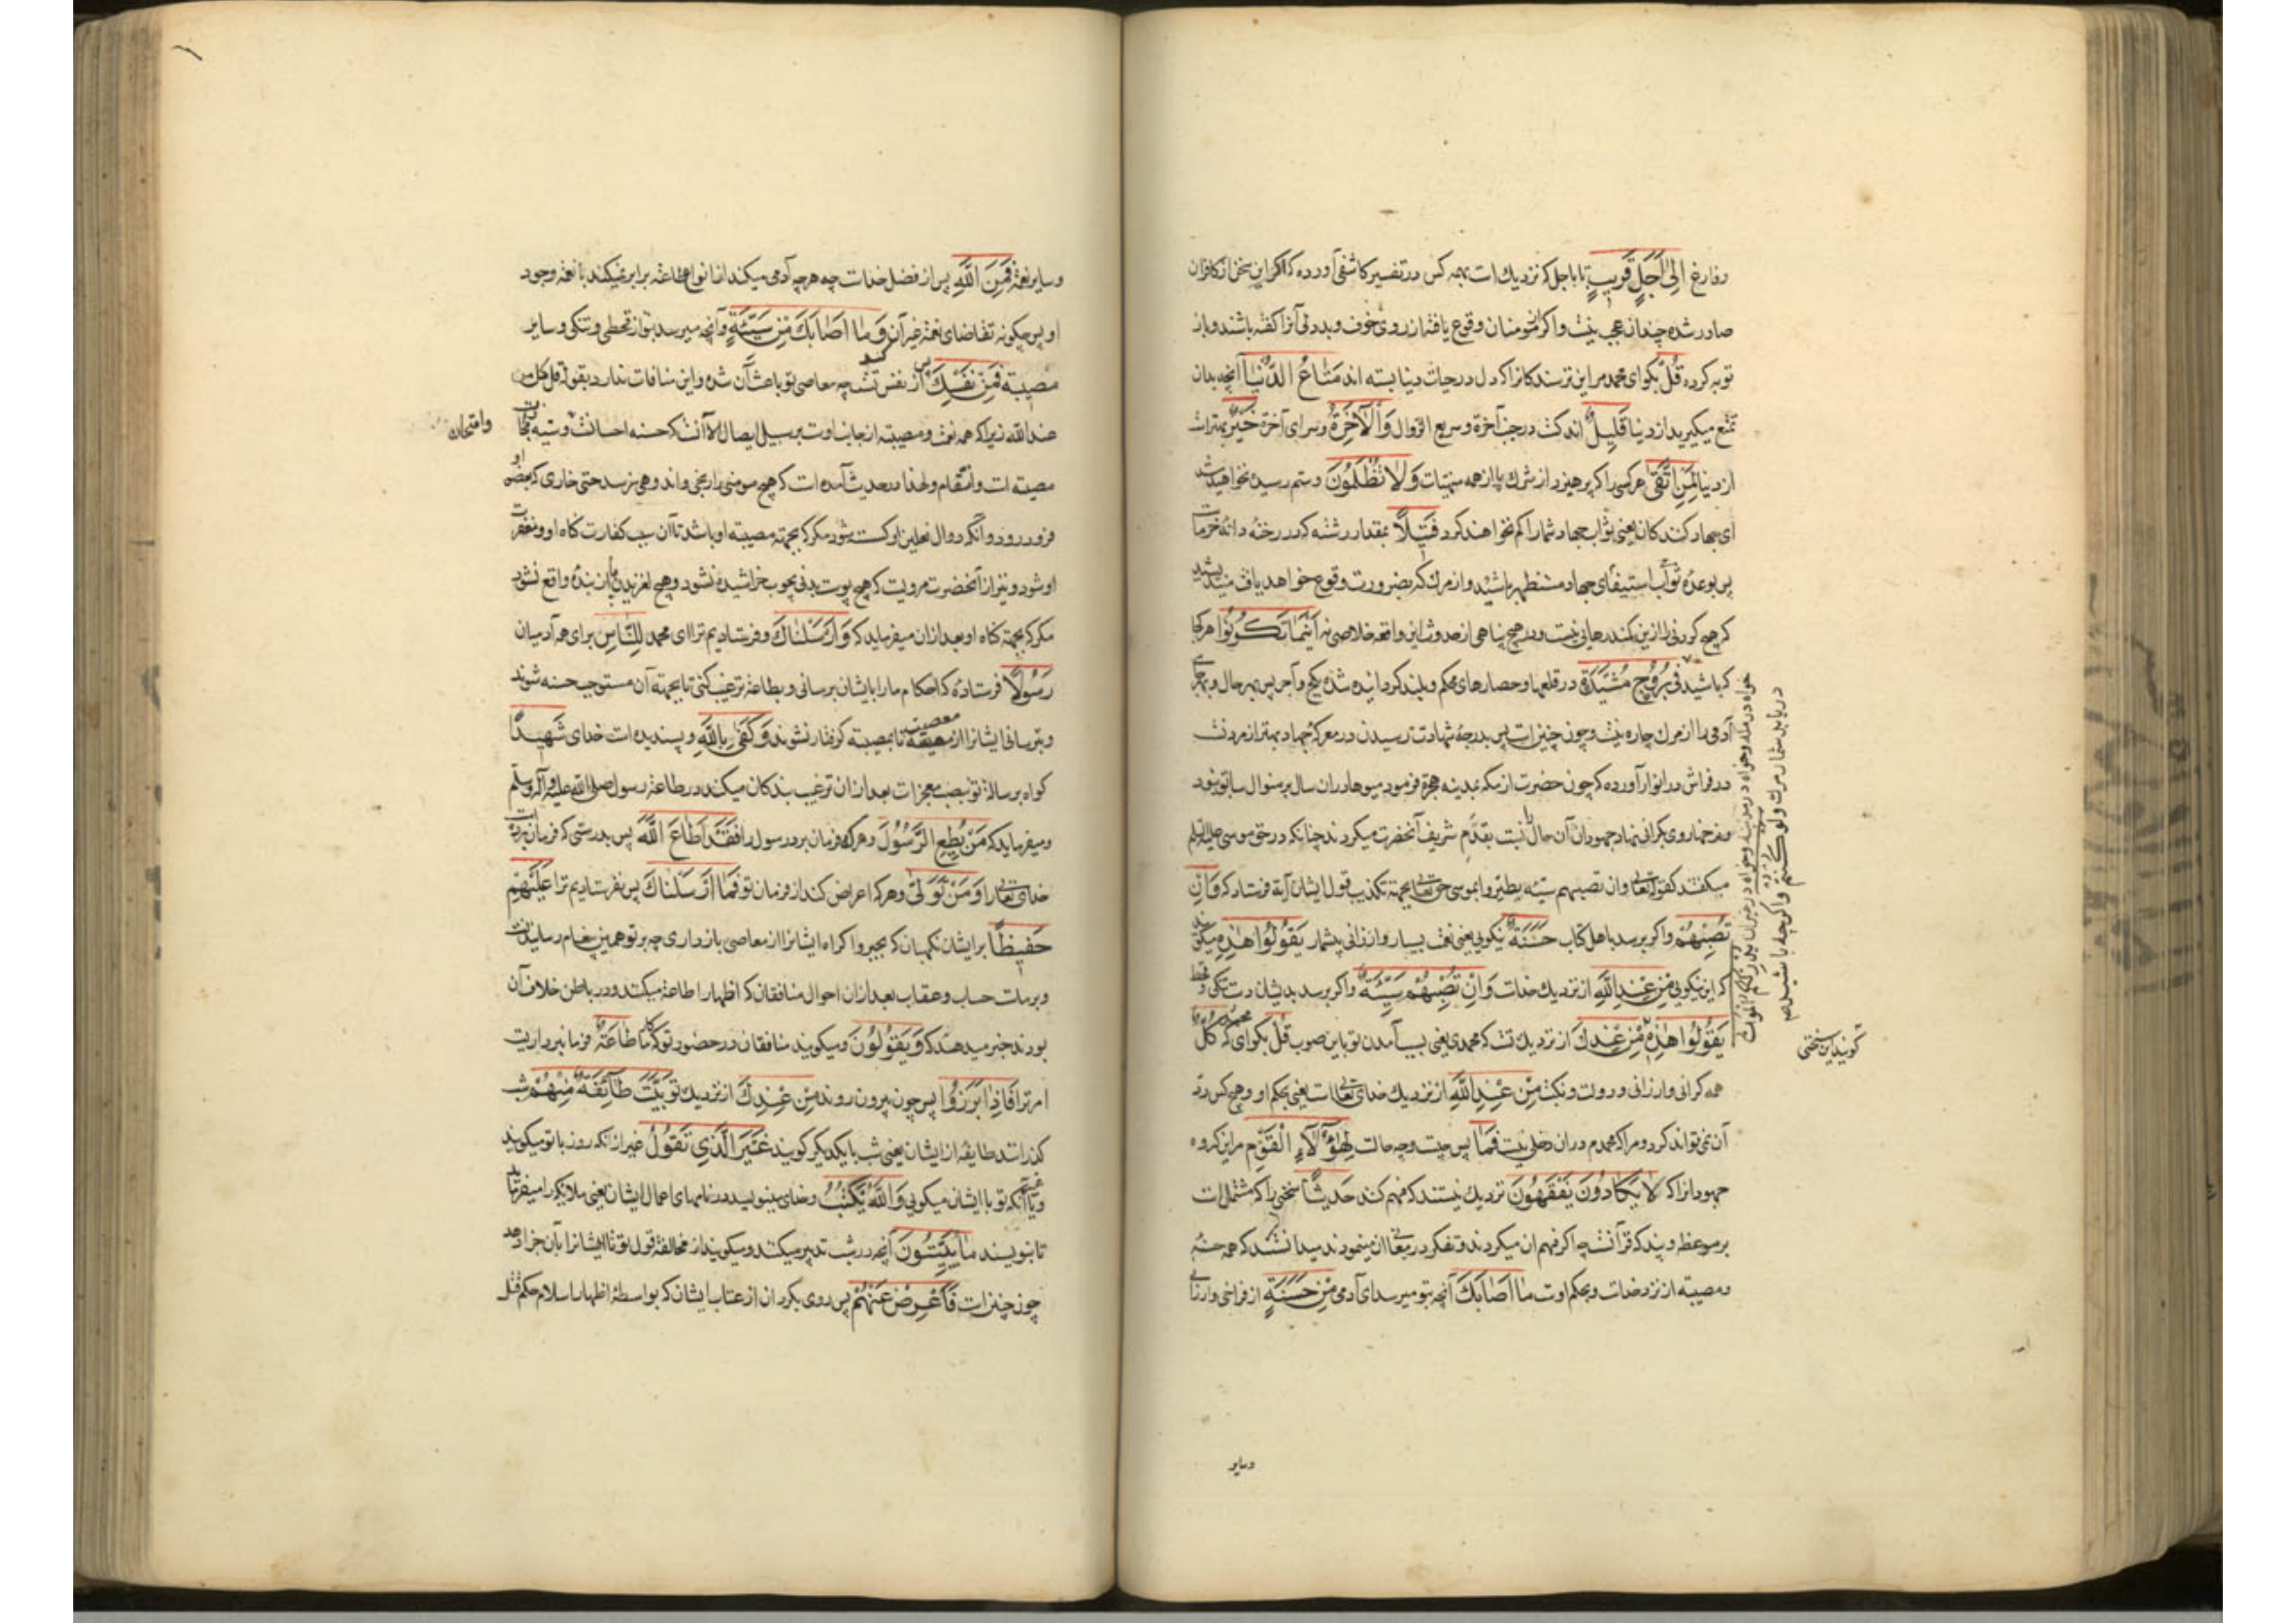 و فارغ اِلیٰ اَجَلٍ قَریبٍ تا باجل که نزدیک است بهمه کس در تفسیر کاشفی آورده که اگر این سخن از کافران
صادر شده چندان عجب نیست و اگر از مومنان وقوع یافته از روی خوف و بددلی آنرا گفته باشند و باز
توبه کرده قُلْ بگو ای محمد مر این ترسندکانرا که دل در حیات دنیا بسته اند مَتَاعُ الدُّنْیَا آنچه بدان
تمتع میگیرید از دنیا قَلِیلٌ اندکست در جنب آخرة و سریع الزوال وَالْاٰخِرَةُ و سرای آخرة خَیْرٌ بهتر است
از دنیا لِمَنِ اتَّقیٰ مر کسی را که پرهیزد از شرک یا از همه سیئات وَلَا تُظْلَمُونَ و ستم رسیده نخواهید شد
ای جهاد کنندکان یعنی ثواب جهاد شما را کم نخواهند کرد فَتِیلًا بمقدار رشته که در رخنه دانه خرماست
پس بوعده ثواب استیفای جهاد مستظهر باشید و از مرک که بضرورت وقوع خواهد یافت میندیشید
که هیچ گردنی را ازین کمند رهایی نیست و در هیچ پناهی از حدوث این واقعه خلاصی نه اَیْنَمَا تَکُونُوا هر کجا
که باشید فی بُرُوجٍ مُشَیَّدَةٍ در قلعها و حصارهای محکم و بلند کردانیده شده بکچ و آجر پس بهر حال و بهر جای
آدمی را از مرک چاره نیست و چون چنین است پس بدرجهٔ شهادت رسیدن در معرکهٔ جهاد بهتر از مردنست
در فراش در انوار آورده که چون حضرت از مکه بمدینه هجرة فرمود میوها در ان سال بر منوال سابق نبود
و نرخها روی بکرانی نهاد جهودان آن حال را نسبت بقدم شریف آنحضرت میکردند چنانکه در حق موسی علیه السلم
میکفتند کقوله تعالی وان تصبهم سیئه یطیروا بموسی حق تعالی بجهة تکذیب قول ایشان آیة فرستاد که وَاِنْ
تُصِبْهُمْ و اگر برسد باهل کتاب حَسَنَةٌ نیکویی یعنی نعمت بسیار و ارزانی بیشمار یَقُولُوا هٰذِهِ میکویند
که این نیکویی مِنْ عِنْدِ اللّٰهِ از نزدیک خداست وَاِنْ تُصِبْهُمْ سَیِّئَةٌ و اگر برسد بدیشان دست تنکی و قحط
یَقُولُوا هٰذِهِ مِنْ عِنْدِکَ از نزدیک تست که محمدی یعنی بسبب آمدن تو باین صوب قُلْ بکو ای محمد که کُلٌّ
همه کرانی و ارزانی و دولت و نکبت مِنْ عِنْدِ اللّٰهِ از نزدیک خدای تعالی است یعنی بحکم او و هیچ کس رد
آن نمی تواند کرد و مرا که محمدم در ان دخلی نیست فَمَا پس چیست و چه حالت لِهٰؤُلَاءِ الْقَوْمِ مر این کروه
جهودانرا که لَا یَکَادُونَ یَفْقَهُونَ نزدیک نیستند که فهم کنند حَدِیثًا سخنی را که مشتمل است
بر موعظه و پند که قرآنست چه اگر فهم ان میکردند و تفکر در معانی ان مینمودند میدانستند که همه حسنه
و مصیبه از نزد خداست و بحکم اوست مَا اَصَابَکَ آنچه بتو میرسد ای آدمی مِنْ حَسَنَةٍ از فراخی و ارزانی
خواه در مکه و خواه در مدینه و خواه در غیر ان یُدْرِکْکُمُ الْمَوْتُ
دریابد شما را مرک وَلَوْ کُنْتُمْ و اکر چه باشید
کویند این سختی
وسایر
و سایر نعمة فَمِنَ اللّٰهِ پس از فضل خداست چه هر چه آدمی میکند از انواع طاعة برابری نمیکند با نعمة وجود
او پس چکونه تقاضای نعمة غیر آن وَمَا اَصَابَکَ مِنْ سَیِّئَةٍ و آنچه میرسد بتو از قحطی و تنکی و سایر
مصیبة فَمِنْ نَفْسِکَ پس از نفس تست چه معاصی تو باعث آن شده و این منافات ندارد بقوله قل کل من
عند الله زیرا که همه نعمت و مصیبة از جانب اوست بر سبیل ایصال الا آنست که حسنه احسانست و سیئه مجازات
وامتحان
مصیبة است و انتقام و لهذا در حدیث آمده است که هیچ مومنی را رنجی و اندوهی نرسد حتی خاری که بعضو او
فرو رود و آنکه دوال نعلین او کسسته شود مکر که بجهة مصیبة او باشد تا آن سبب کفارت کناه او و مغفرت
او شود و نیز از آنحضرت مرویست که هیچ پوست بدنی بچوب خراشیده نشود و هیچ لغزیدن پا از بنده واقع نشود
مکر که بجهة کناه او بعد ازان میفرماید که وَاَرْسَلْنَاکَ و فرستادیم ترا ای محمد لِلنَّاسِ برای همه آدمیان
رَسُولًا فرستاده که احکام ما را بایشان برسانی و بطاعة ترغیب کنی تا بجهة آن مستوجب حسنه شوند
و بترسانی ایشانرا از معصیت تا بمصیبة کرفتار نشوند وَکَفیٰ بِاللّٰهِ و پسندیده است خدای شَهِیدًا
کواه بر رسالة تو بنصب معجزات بعد ازان ترغیب بندکان میکند در طاعة رسول صلی الله علیه و آله وسلم
و میفرماید که مَنْ یُطِعِ الرَّسُولَ و هر که فرمان برد رسول را فَقَدْ اَطَاعَ اللّٰهَ پس بدرستی که فرمان برده است
خدای تعالی را وَمَنْ تَوَلّیٰ و هر که اعراض کند از فرمان تو فَمَا اَرْسَلْنَاکَ پس نفرستادیم ترا عَلَیْهِمْ
حَفِیظًا بر ایشان نکهبان که بجبر و اکراه ایشانرا از معاصی بازداری چه بر تو همین پیغام رسانیدنست
و بر ماست حساب و عقاب بعد ازان احوال منافقان که اظهار اطاعة میکنند و در باطن خلاف آن
بودند خبر میدهند که وَیَقُولُونَ و میکویند منافقان در حضور تو که کار ما طَاعَةٌ فرمانبرداریست
امر ترا فَاِذَا بَرَزُوا پس چون بیرون روند مِنْ عِنْدِکَ از نزدیک تو بَیَّتَ طَآئِفَةٌ مِنْهُمْ شب
کذرانند طایفه از ایشان یعنی شب با یکدیکر کویند غَیْرَ الَّذِی تَقُولُ غیر از آنکه روز با تو میکویند
و یا غیر آنکه تو با ایشان میکویی وَاللّٰهُ یَکْتُبُ و خدای مینویسد در نامهای اعمال ایشان یعنی ملائکه را میفرماید
تا بنویسند مَا یُبَیِّتُونَ آنچه در شب تدبیر میکنند و میکویند از مخالفة قول تو تا ایشانرا بآن جزا دهد
چون چنین است فَاَعْرِضْ عَنْهُمْ پس روی بکردان از عتاب ایشان که بواسطهٔ اظهار اسلام حکم قتل